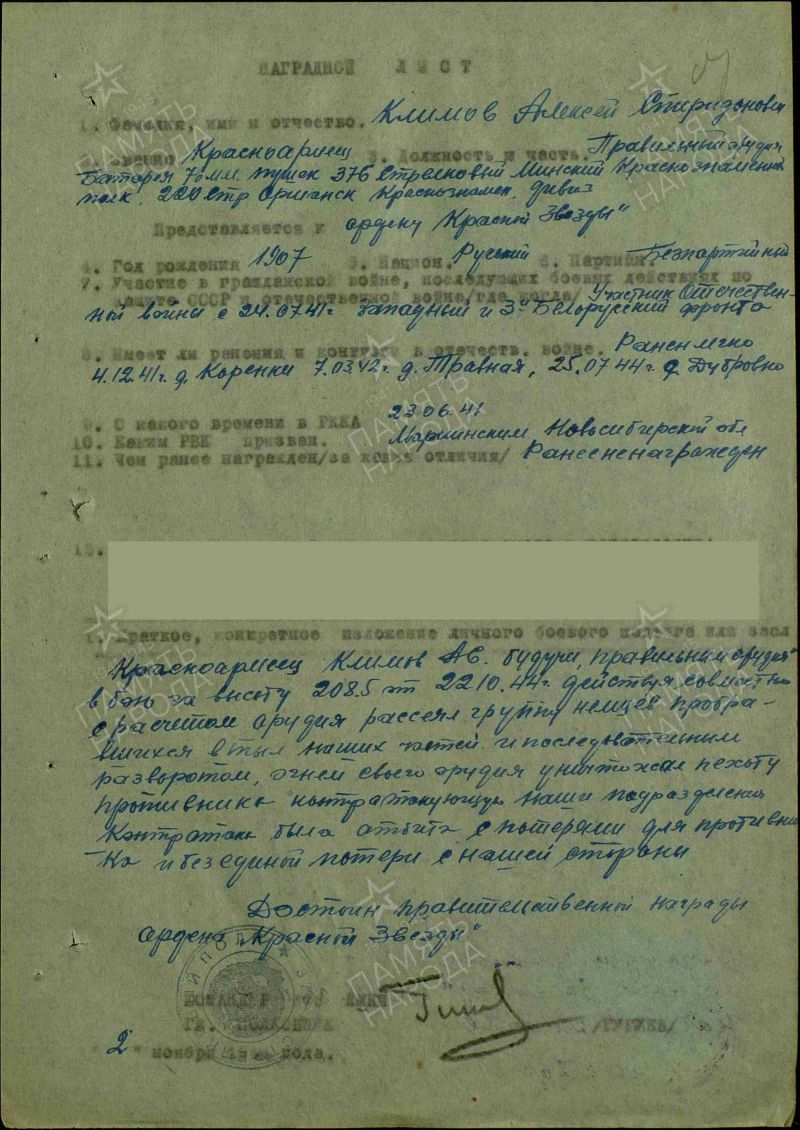 НАГРАДНОЙ ЛИСТ
1. Фамилия, имя и отчество. Климов Алексей Спиридонович
2. Звание Красноармеец 3. Должность и часть. Правильный орудия
Батареи 76 мм пушек 376 Стрелковый Минский Краснознаменный
полк, 220 стр Оршанск Краснознамен. дивиз
Представляется к ордену Красной Звезды"
4. Год рождения 1907 5. Национ. Русский 6. Партийн. Безпартийный
7. Участие в гражданской войне, последующих боевых действиях по
защите СССР и отечественной войне/где когда/ Участник Отечествен-
ной войны с 24.07.41г Западный и 3й Белорусский фронта
8. Имеет ли ранения и контузии в отечеств. войне. Ранен легко
4.12.41г д. Коренки 7.03.42г д. Травная, 25.07.44г д. Дубровно
9. С какого времени в РККА 23.06.41
10. Каким РВК призван. Мариинским Новосибирской обл
11. Чем ранее награжден/за какие отличия/ Ранее ненагражден
12.
1. Краткое, конкретное изложение личного боевого подвига или засл
Красноармеец Климов А.С. будучи „правильным орудия"
в бою за высоту 208.5 от 22.10.44г. действуя совместно
с расчетом орудия рассеял группу немцев пробра-
вшихся в тыл наших частей и последовательным
разворотом, огнем своего орудия уничтожал пехоту
противника контратакующую наши подразделения
Контратака была отбита с потерями для противни
ка и без единой потери с нашей стороны
Достоин правительственной награды
ордена „Красной Звезды"
КОМАНДИР 376 ПОЛКА
ГВ. ПОЛКОВНИК
"2" ноября 1944 года.
ПАМЯТЬ НАРОДА